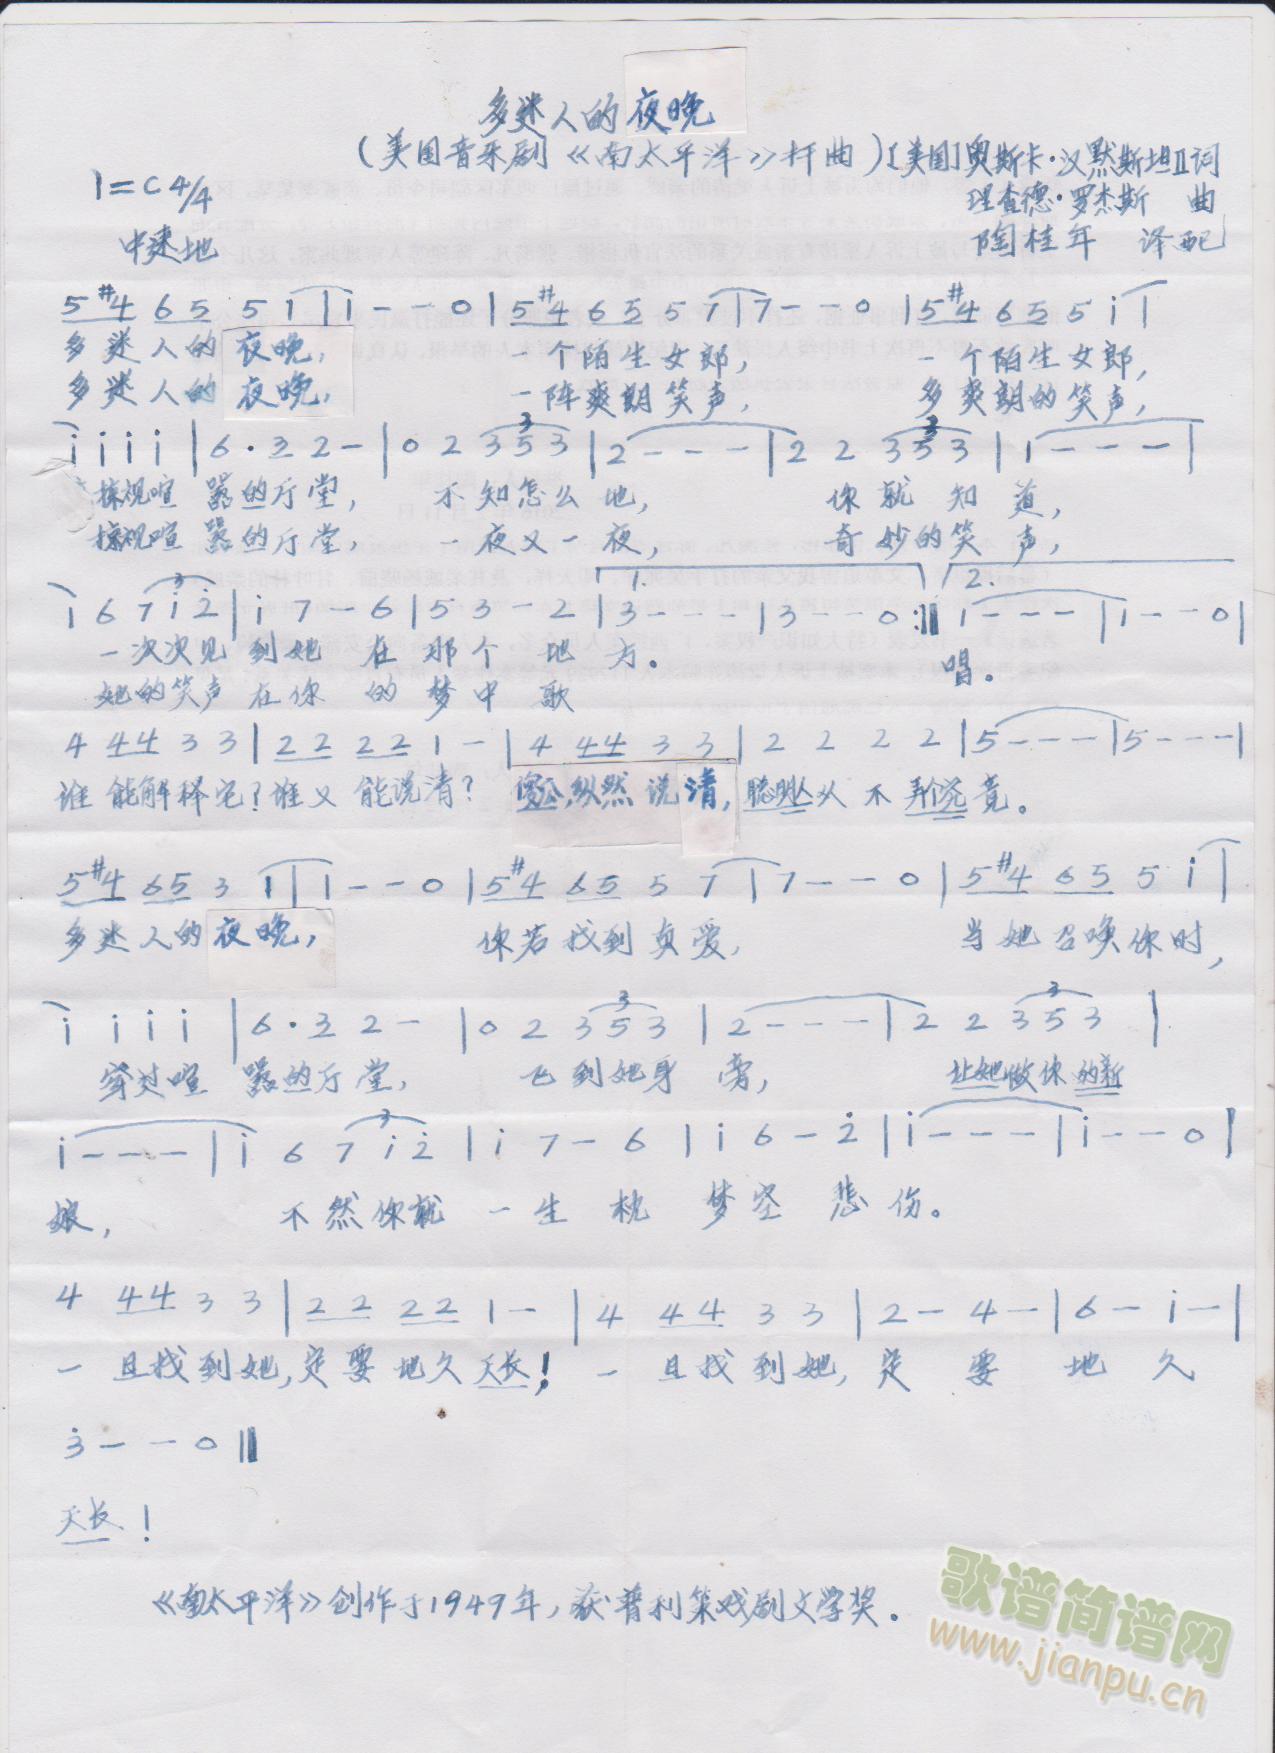 多迷人的夜晚
(美国音乐剧《南太平洋》插曲)[美国]奥斯卡·汉默斯坦Ⅱ词
1=C 4/4
理查德·罗杰斯 曲
中速地
陶桂年 译配
5 #4 6 5 5 1 | 1 - - 0 | 5 #4 6 5 5 7 | 7 - - 0 | 5 #4 6 5 5 i |
多迷人的夜晚, 一个陌生女郎, 一个陌生女郎,
多迷人的夜晚, 一阵爽朗笑声, 多爽朗的笑声,
i i i i | 6 · 3 2 - | 0 2 3 5 3 | 2 - - - | 2 2 3 5 3 | 1 - - - |
掠视喧嚣的厅堂, 不知怎么地, 你就知道,
掠视喧嚣的厅堂, 一夜又一夜, 奇妙的笑声,
1. 2.
i 6 7 i 2 | i 7 - 6 | 5 3 - 2 | 3 - - - | 3 - - 0 :| 1 - - - | 1 - - 0 |
一次次见到她在那个地方。 唱。
她的笑声在你的梦中歌
4 4 4 3 3 | 2 2 2 2 1 - | 4 4 4 3 3 | 2 2 2 2 | 5 - - - | 5 - - - |
谁能解释它?谁又能说清? 傻瓜,纵然说清, 聪明人从不弄个究竟。
5 #4 6 5 3 1 | 1 - - 0 | 5 #4 6 5 5 7 | 7 - - 0 | 5 #4 6 5 5 i |
多迷人的夜晚, 你若找到真爱, 当她召唤你时,
i i i i | 6 · 3 2 - | 0 2 3 5 3 | 2 - - - | 2 2 3 5 3 |
穿过喧嚣的厅堂, 飞到她身旁, 让她做你的新
i - - - | i 6 7 i 2 | i 7 - 6 | i 6 - 2 | i - - - | i - - 0 |
娘, 不然你就一生枕梦空悲伤。
4 4 4 3 3 | 2 2 2 2 1 - | 4 4 4 3 3 | 2 - 4 - | 6 - i - |
一旦找到她,定要地久天长! 一旦找到她,定要地久
3 - - 0 ‖
天长!
《南太平洋》创作于1949年,获普利策戏剧文学奖.
歌谱简谱网
www.jianpu.cn